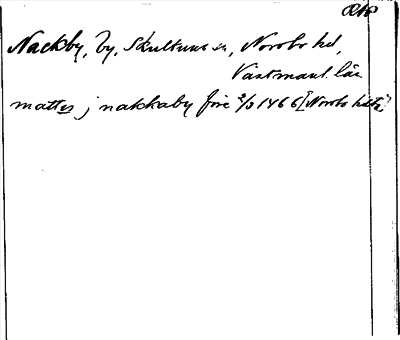 RAP
Nackby, by, Skultuna sn, Norrbo hd,
Västmanl. län
mattes j nakkaby före 2/3 1466 [Norrbo hd]